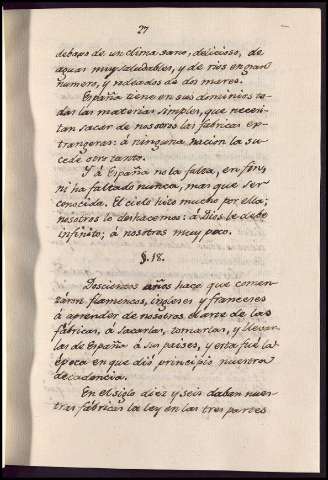 27
debaxo de un clima sano, delicioso, de
aguas muy saludables, y de rios en gran
numero, y rodeados de dos mares.
España tiene en sus dominios to-
das las materias simples, que necesi-
tan sacar de nosotros las fabricas ex-
trangeras: á ninguna nacion la su-
cede otro tanto.
Y á España no la falta, en fin,
ni ha faltado nunca, mas que ser
conocida. El cielo hizo mucho por ella;
nosotros lo deshacemos: á Dios le debe
infinito; á nosotros muy poco.
§. 18.
Doscientos años hace que comen-
zaron flamencos, ingleses y franceses
á aprender de nosotros el arte de las
fábricas, á sacarlas, tomarlas, y llevar-
las de España á sus paises, y esta fué la
época en que dió principio nuestra
decadencia.
En el siglo diez y seis daban nues-
tras fábricas la ley en las tres partes